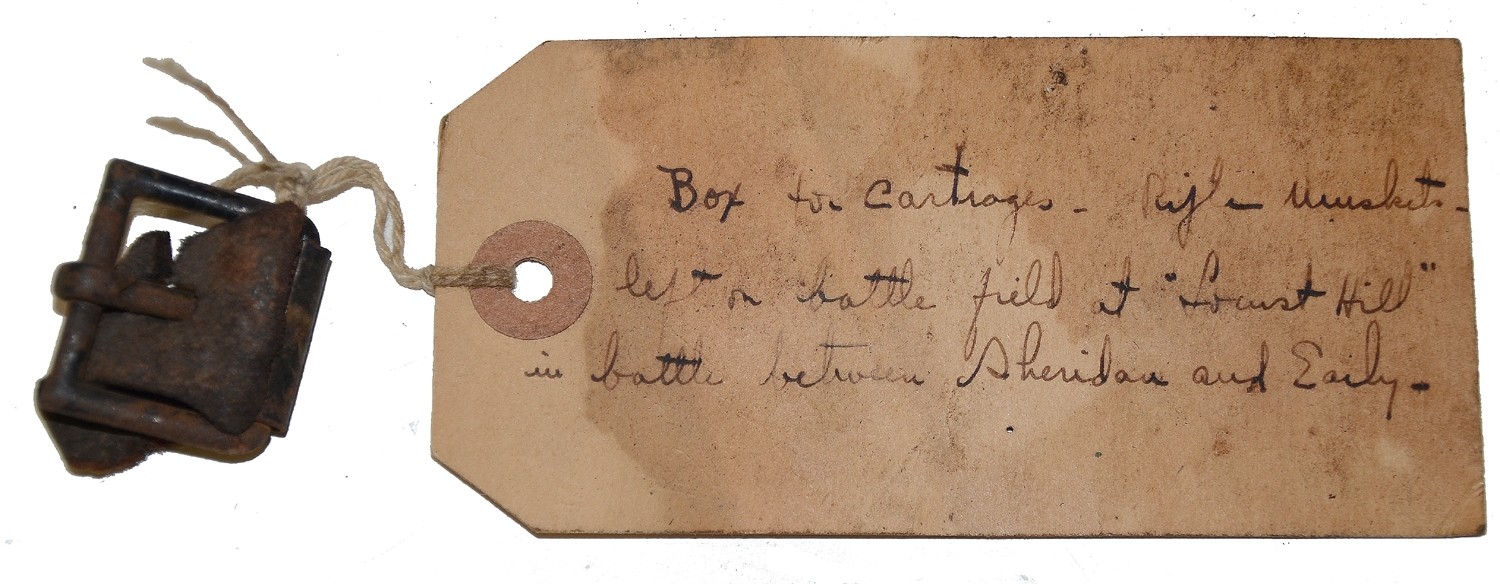 Box for Cartrages - Rifle Muskets -
left on battle field at "Locust Hill"
in battle between Sheridan and Early -